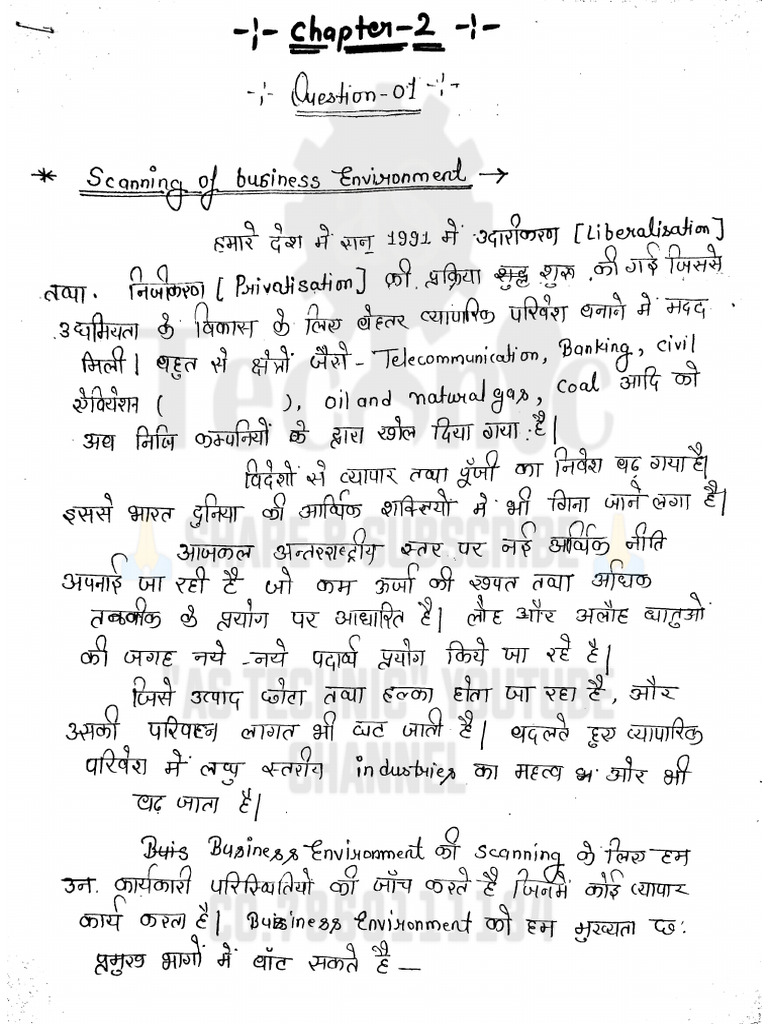 -:- Chapter-2 -:-
-:- Question-01 -:-
* Scanning of business Environment →
हमारे देश में सन् 1991 में उदारीकरण [Liberalisation]
तथा. निजीकरण [Privatisation] की प्रक्रिया शुरू की गई जिससे
उद्यमियता के विकास के लिए बेहतर व्यापारिक परिवेश बनाने में मदद
मिली। बहुत से क्षेत्रों जैसे- Telecommunication, Banking, civil
ऐवियेशन ( ), oil and natural gas, coal आदि को
अब निजि कम्पनियों के द्वारा खोल दिया गया है।
विदेशों से व्यापार तथा पूँजी का निवेश बढ़ गया है।
इससे भारत दुनिया की आर्थिक शक्तियों में भी गिना जाने लगा है।
आजकल अन्तराष्ट्रीय स्तर पर नई आर्थिक नीति
अपनाई जा रही है जो कम ऊर्जा की खपत तथा अधिक
तकनीक के प्रयोग पर आधारित है। लौह और अलौह धातुओं
की जगह नये-नये पदार्थ प्रयोग किये जा रहे है।
जिसे उत्पाद छोटा तथा हल्का होता जा रहा है, और
उसकी परिवहन लागत भी घट जाती है। बदलते हुए व्यापारिक
परिवेश में लघु स्तरीय industries का महत्व और भी
बढ़ जाता है।
Business Environment की scanning के लिए हम
उन. कार्यकारी परिस्थितियों की जाँच करते है जिनमें कोई व्यापार
कार्य करता है। Business Environment को हम मुख्यता छः
प्रमुख भागों में बाँट सकते है —
Technic
SHARE & SUBSCRIBE
"AS TECHNIC" YOUTUBE
CHANNEL